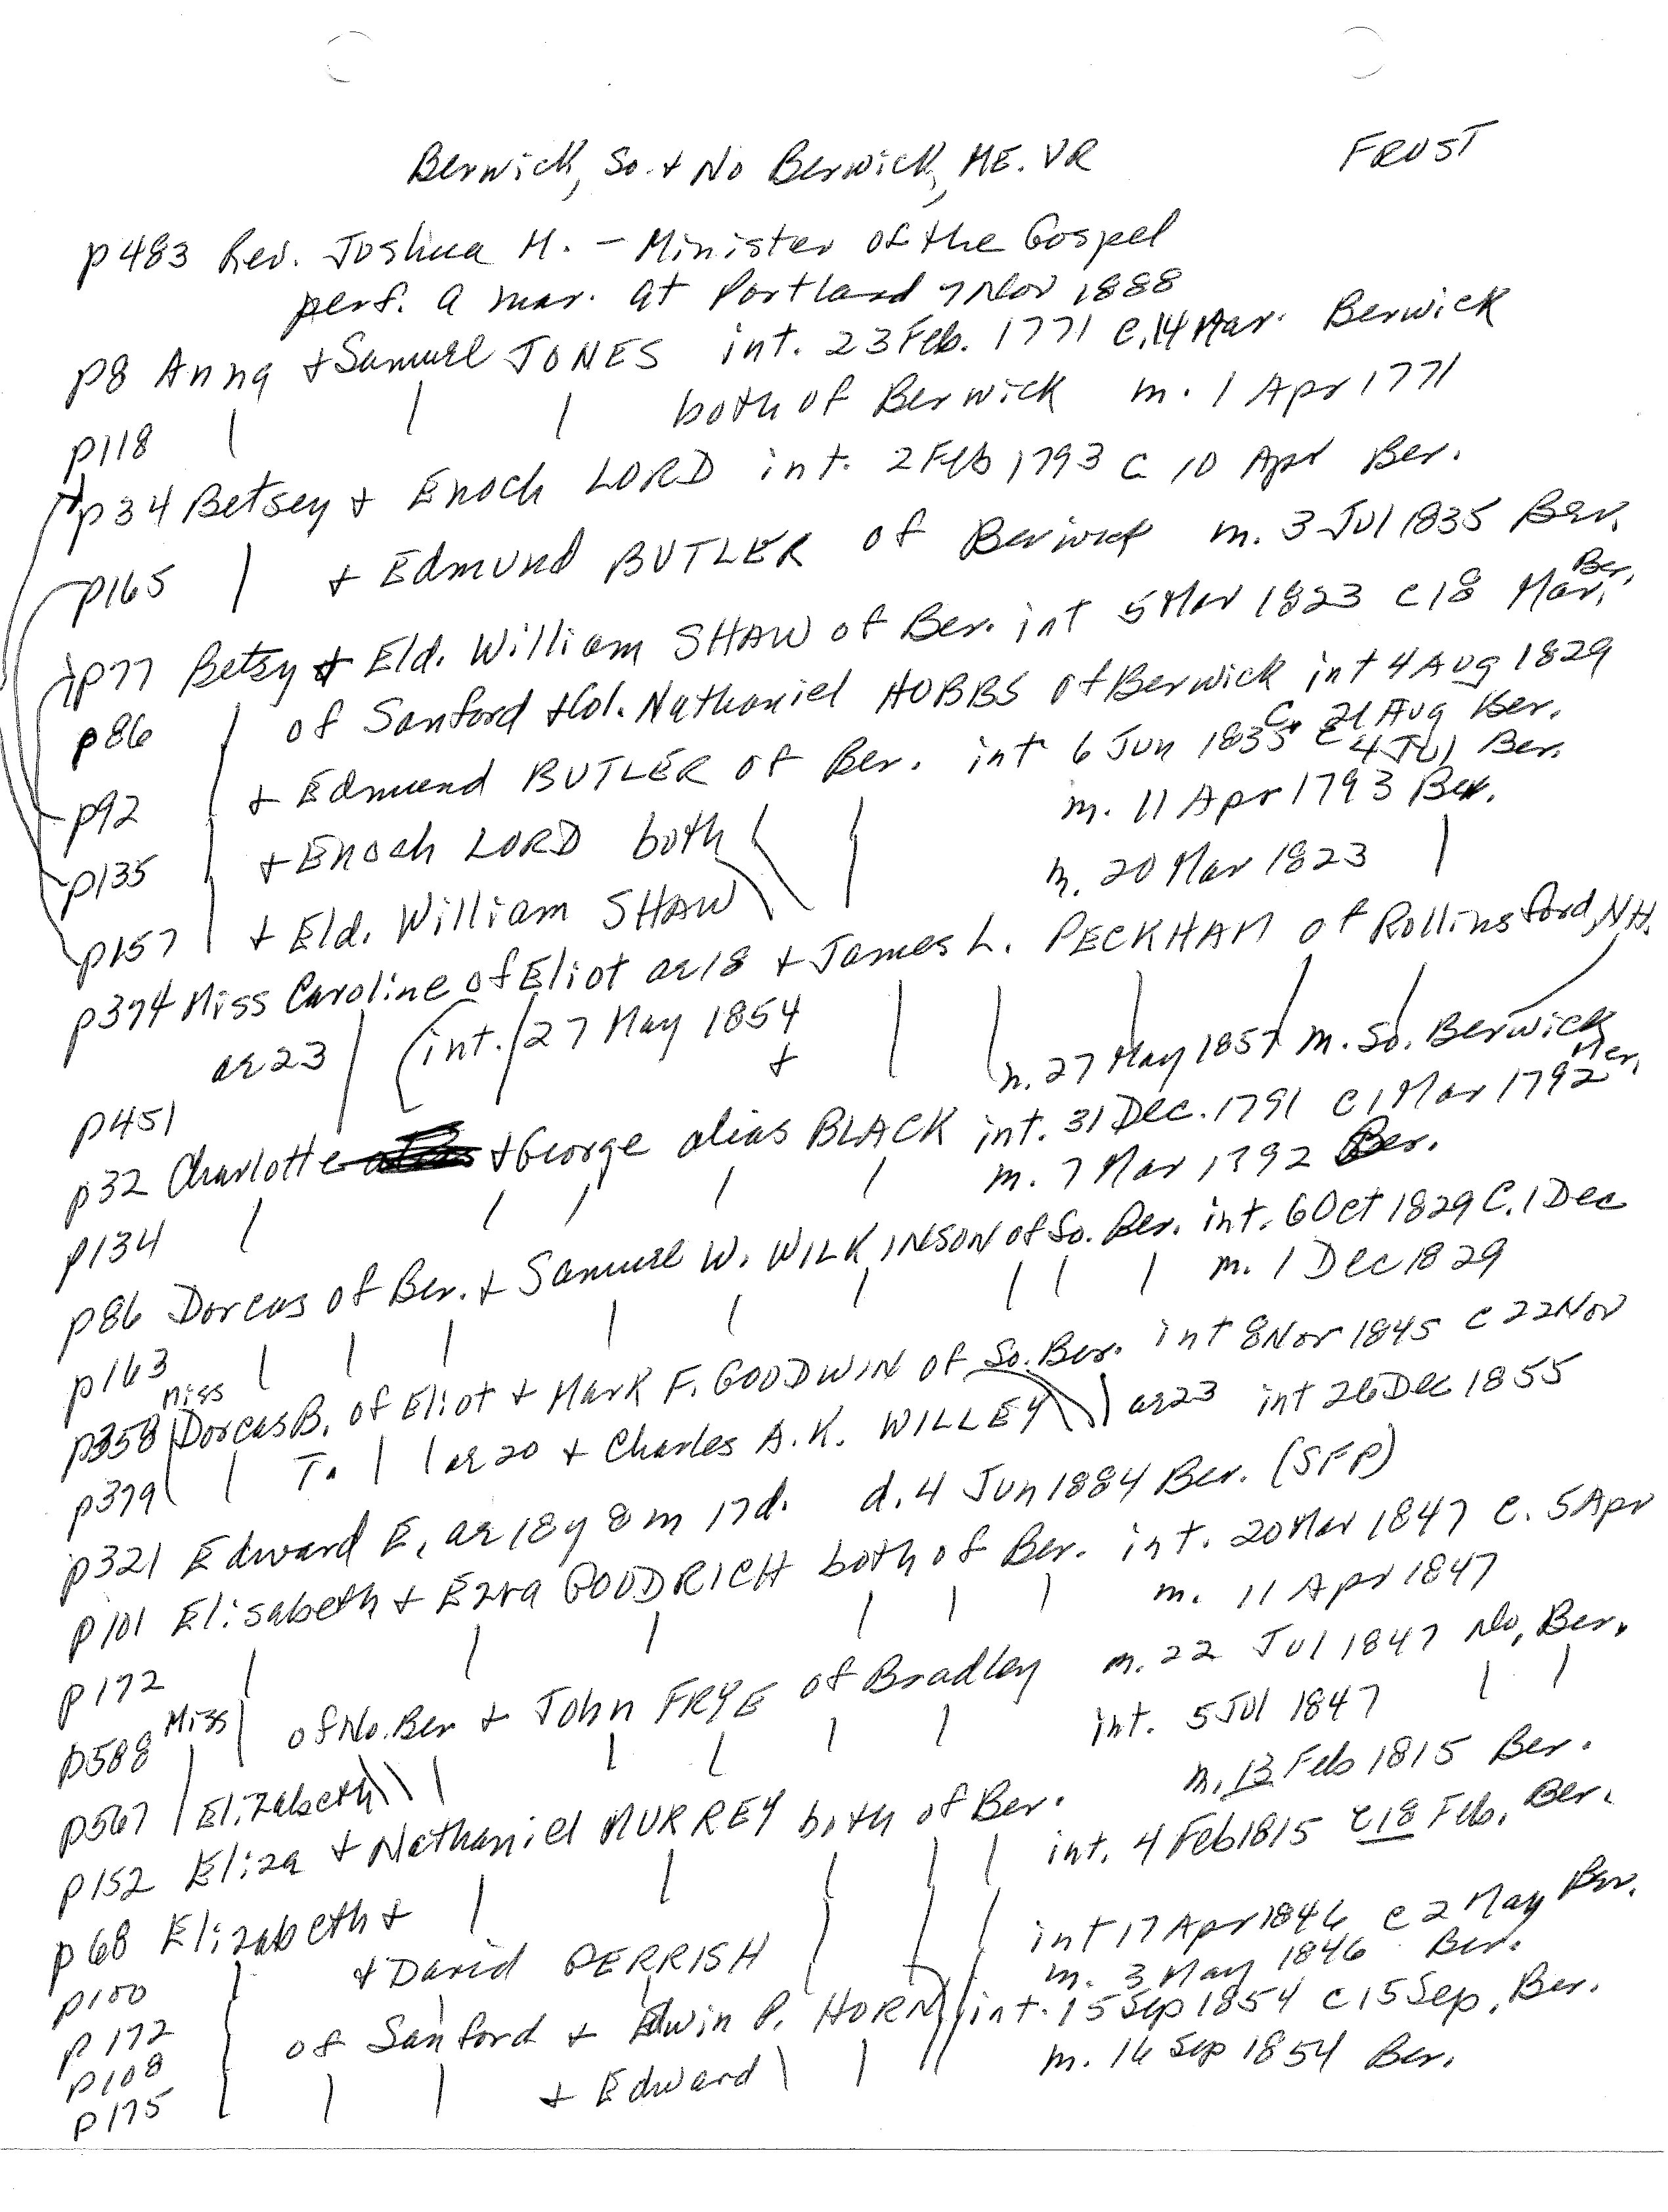 Berwick, So. + No Berwick, ME. VR FROST
p483 Rev. Joshua M. - Minister of the Gospel
perf. a mar. at Portland 7 Nov 1888
p8 Anna + Samuel JONES int. 23 Feb. 1771 c.14 Mar. Berwick
p118 | | | both of Berwick m. 1 Apr 1771
p34 Betsey + Enoch LORD int. 2 Feb 1793 c 10 Apr Ber.
p165 | + Edmund BUTLER of Berwick m. 3 Jul 1835 Ber.
p77 Betsy + Eld. William SHAW of Ber. int 5 Mar 1823 c 18 Mar. Ber.
p86 | of Sanford + Col. Nathaniel HOBBS of Berwick int 4 Aug 1829
c. 21 Aug Ber.
p92 | + Edmund BUTLER of Ber. int 6 Jun 1835 c 4 Jul Ber.
p135 | + Enoch LORD both \ | m. 11 Apr 1793 Ber.
p157 | + Eld. William SHAW \ | m. 20 Mar 1823 |
p374 Miss Caroline of Eliot ae 18 + James L. PECKHAM of Rollinsford, N.H.
ae 23 | (int. | 27 May 1854
p451 | + | | m. 27 May 1857 m. So. Berwick
p32 Charlotte + George alias BLACK int. 31 Dec. 1791 c 1 Mar 1792 Ber.
p134 | | | | | m. 7 Mar 1792 Ber.
p86 Dorcas of Ber. + Samuel W. WILKINSON of So. Ber. int. 6 Oct 1829 C. 1 Dec
p163 | | | | | | | | | m. 1 Dec 1829
p358 Miss Dorcas B. of Eliot + Mark F. GOODWIN of So. Ber. int 8 Nov 1845 c 22 Nov
p379 | | T. | | ae 20 + Charles A.K. WILLEY \ | ae 23 int 26 Dec 1855
p321 Edward E, ae 18y 8m 17d. d. 4 Jun 1884 Ber. (SFP)
p101 Elisabeth + Ezra GOODRICH both of Ber. int. 20 Mar 1847 c. 5 Apr
p172 | | | | | | m. 11 Apr 1847
p588 Miss | of No. Ber + John FRYE of Bradley m. 22 Jul 1847 No. Ber.
p567 | Elizabeth \ \ | | | | | int. 5 Jul 1847 | |
p152 Eliza + Nathaniel MURREY both of Ber. m. 13 Feb 1815 Ber.
p68 Elizabeth + | | | | | int. 4 Feb 1815 c 18 Feb. Ber.
p100 | + David GERRISH | | | int 17 Apr 1846 c 2 May Ber.
p172 | | | + | | m. 3 May 1846 Ber.
p108 | of Sanford + Edwin P. HORN | | int. 15 Sep 1854 c 15 Sep. Ber.
p175 | | | + Edward | | | m. 16 Sep 1854 Ber.